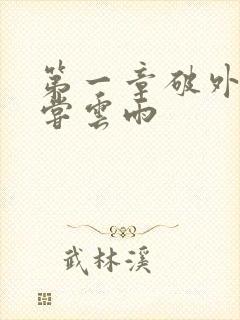 第一章破外
嘗雲雨
武林溪